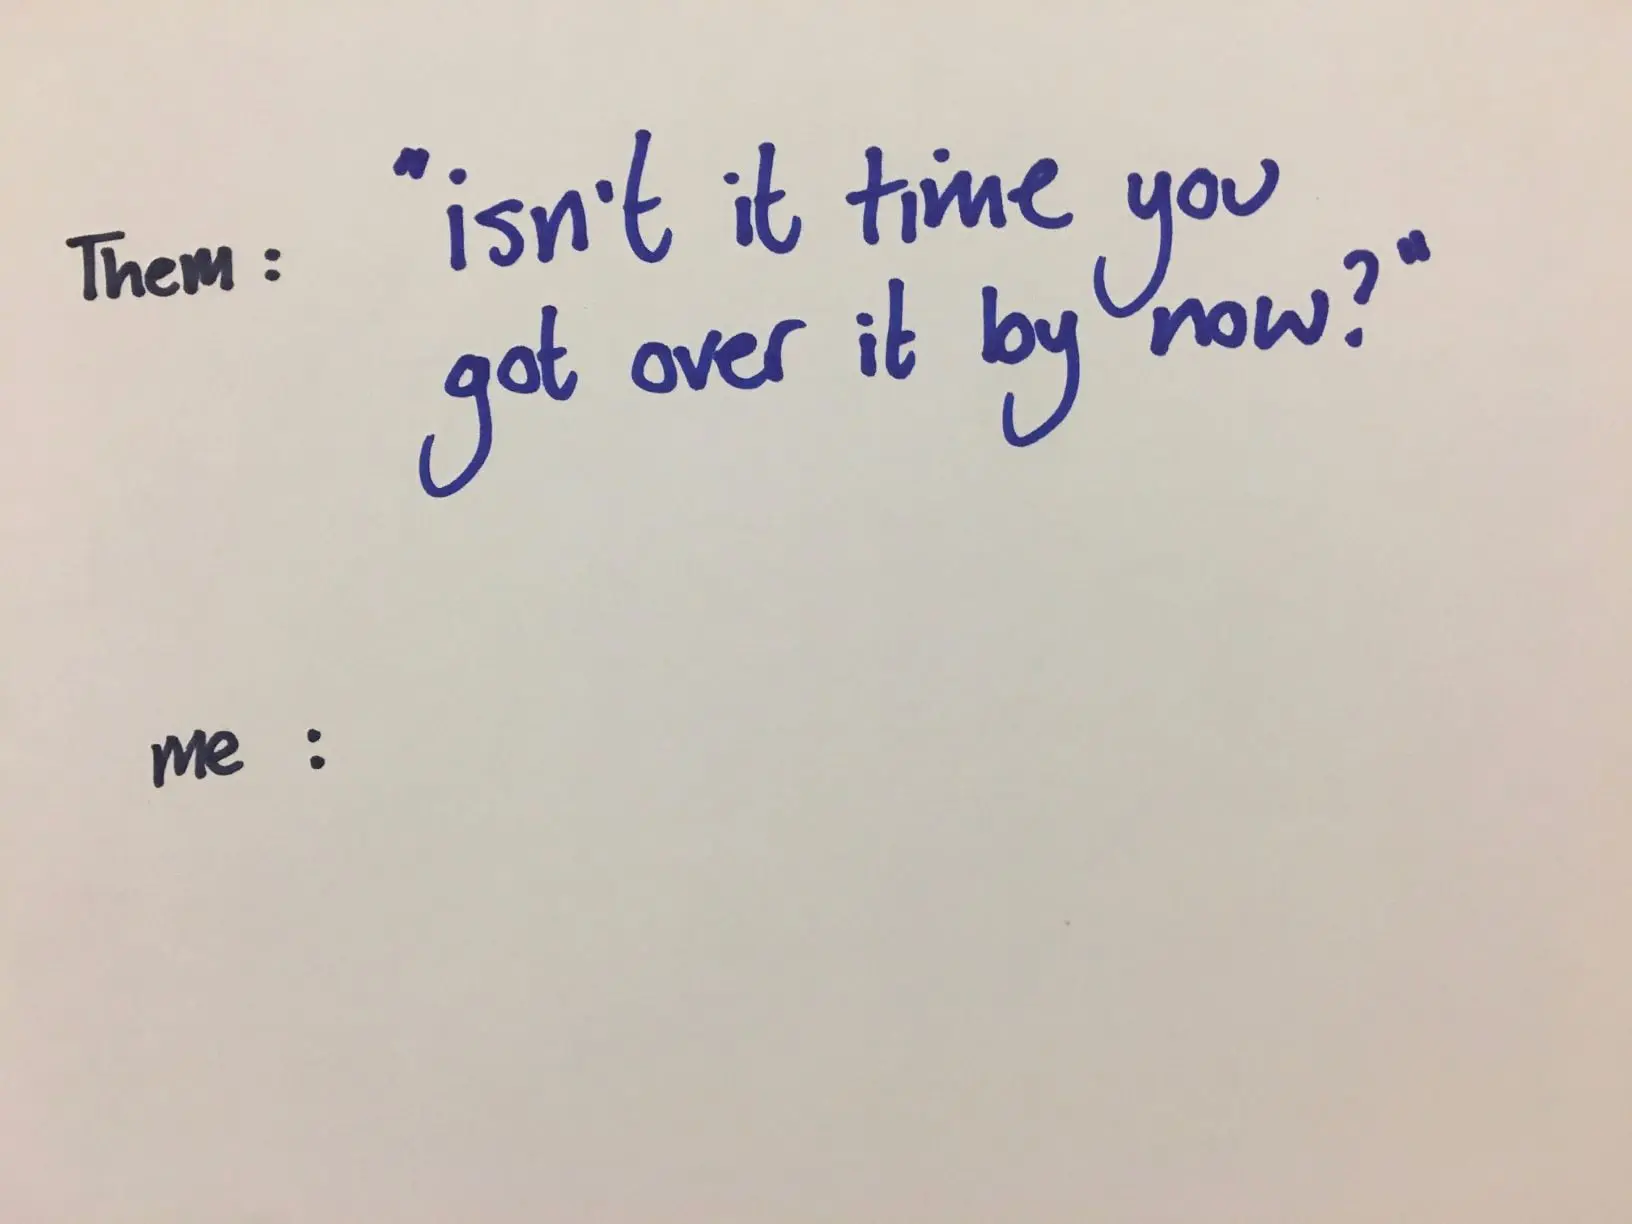 Them: "isn't it time you
got over it by now?"
me :